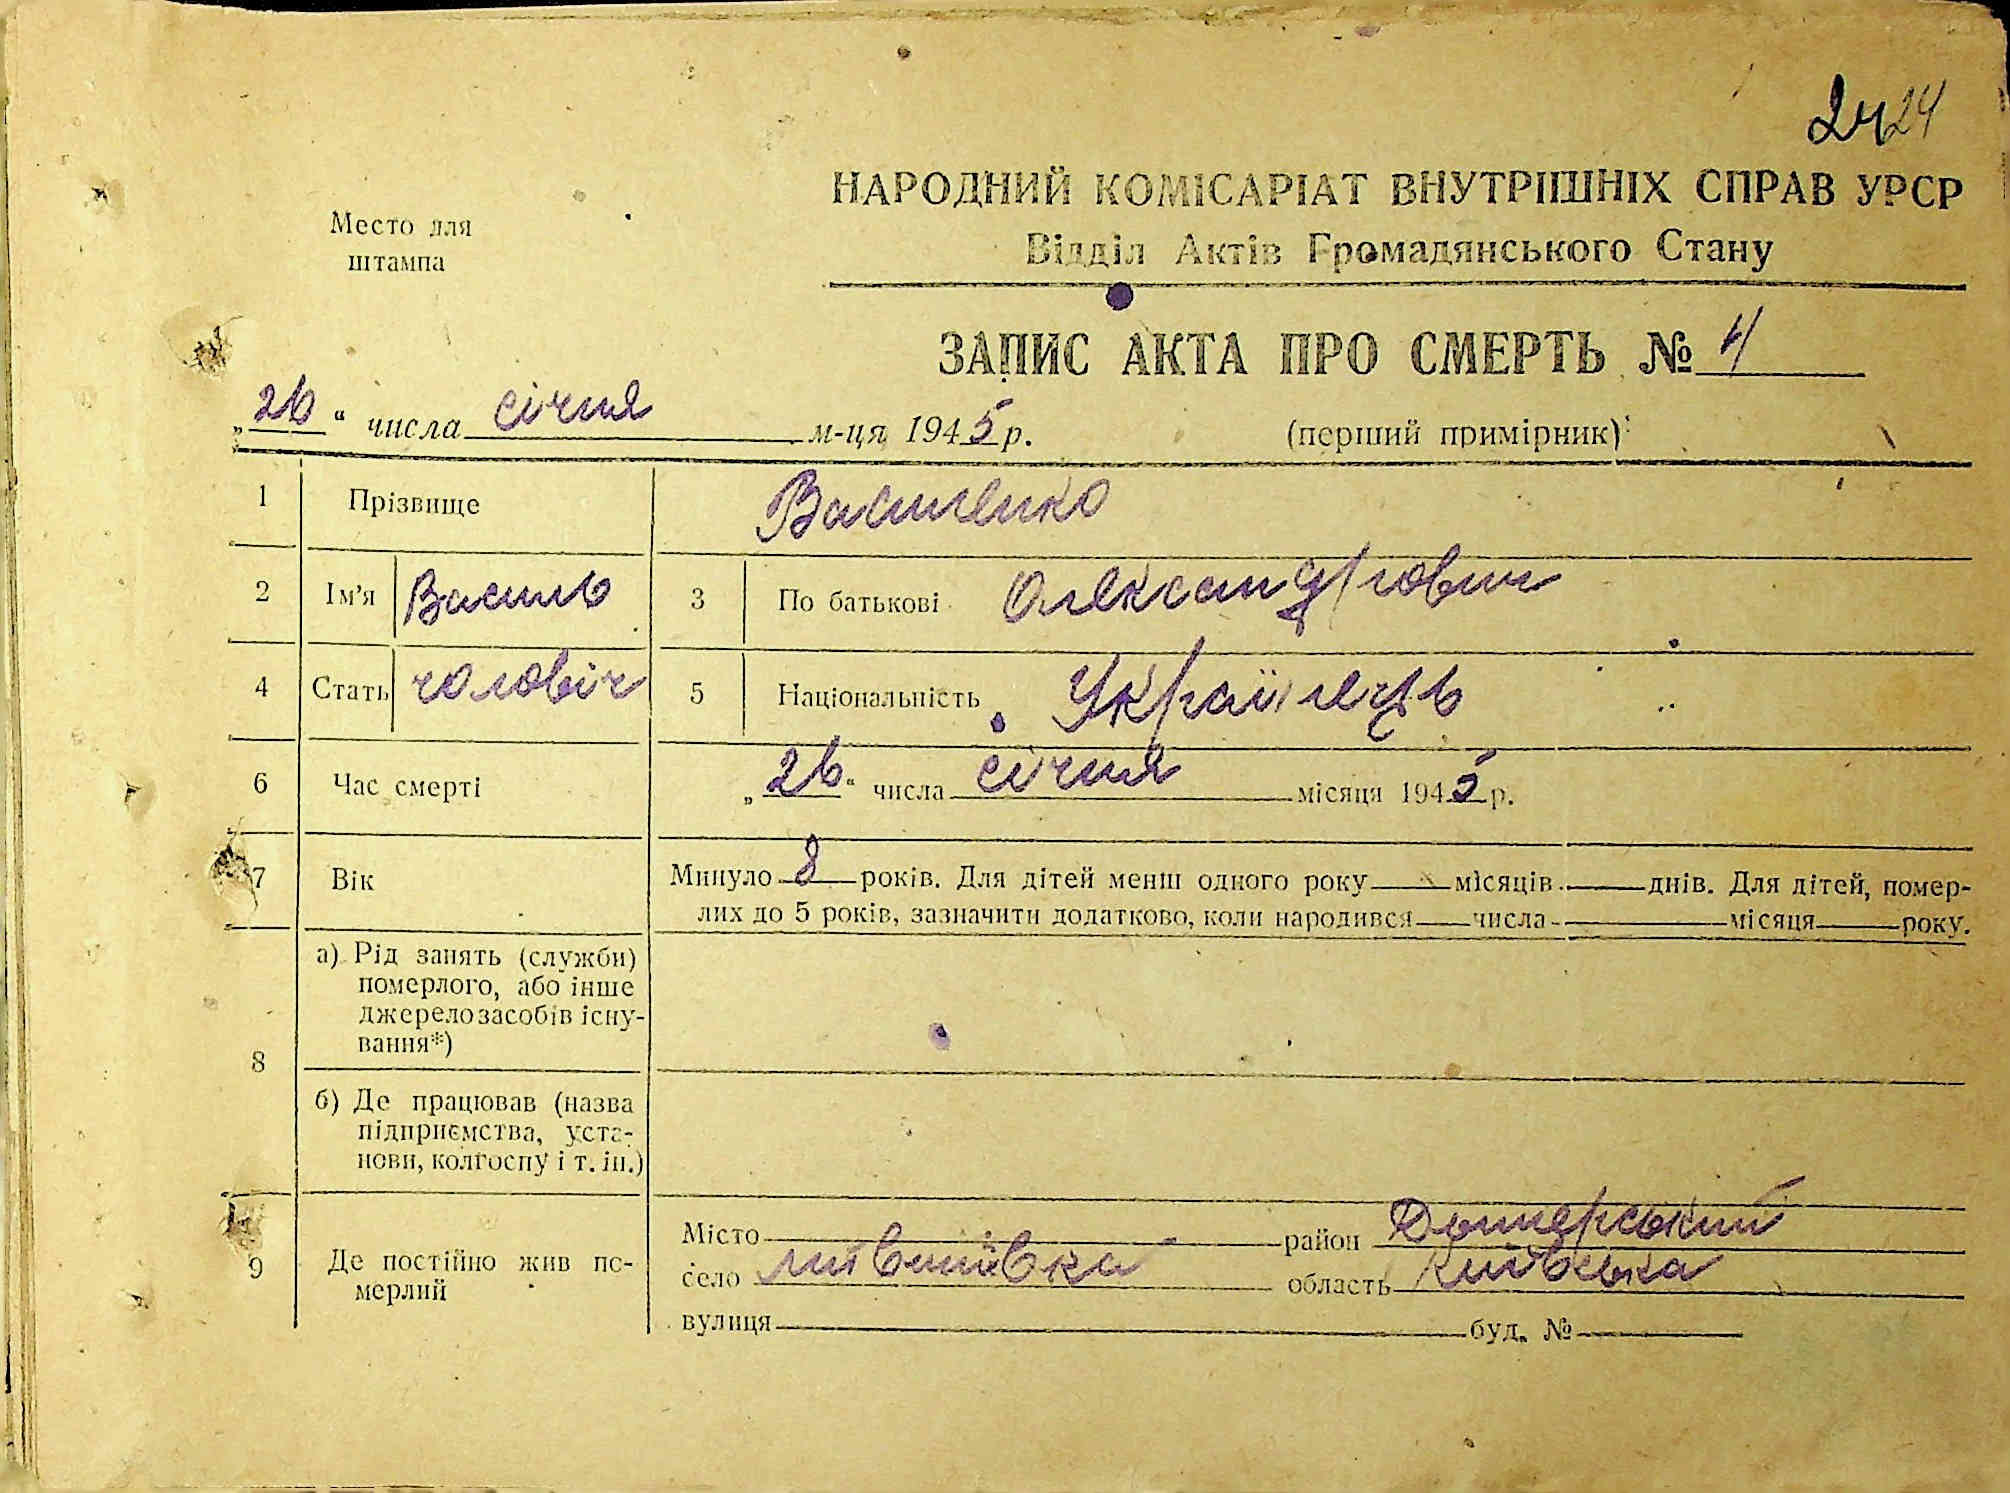 24 24
НАРОДНИЙ КОМІСАРІАТ ВНУТРІШНІХ СПРАВ УРСР
Место для
штампа
Відділ Актів Громадянського Стану
ЗАПИС АКТА ПРО СМЕРТЬ № 4
„26“ числа січня м-ця 1945 р.
(перший примірник)
1 Прізвище Василенко
2 Ім'я Василь 3 По батькові Олександрович
4 Стать чоловіч 5 Національність Українець
6 Час смерті „26“ числа січня місяця 1945 р.
7 Вік Минуло 8 років. Для дітей менш одного року місяців днів. Для дітей, помер-
лих до 5 років, зазначити додатково, коли народився числа місяця року.
8 а) Рід занять (служби)
померлого, або інше
джерело засобів існу-
вання*)
б) Де працював (назва
підприємства, уста-
нови, колгоспу і т. ін.)
9 Де постійно жив по-
мерлий
Місто район Димерський
село область Київська
вулиця буд. №